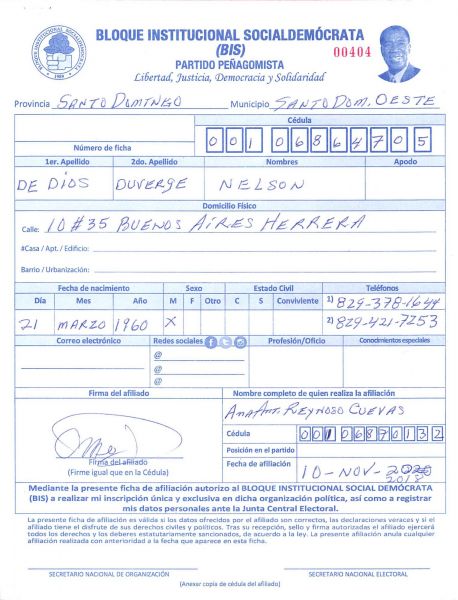 BLOQUE INSTITUCIONAL SOCIALDEMÓCRATA
(BIS)
00404
PARTIDO PEÑAGOMISTA
Libertad, Justicia, Democracia y Solidaridad
Provincia SANTO DOMINGO Municipio SANTO DOM. OESTE
Cédula
Número de ficha 001 0686470 5
1er. Apellido 2do. Apellido Nombres Apodo
DE DIOS DUVERGE NELSON
Domicilio Físico
Calle: 10 #35 BUENOS AIRES HERRERA
#Casa / Apt. / Edificio:
Barrio / Urbanización:
Fecha de nacimiento Sexo Estado Civil Teléfonos
Día Mes Año M F Otro C S Conviviente 1) 829-378-1644
21 MARZO 1960 X 2) 829-421-7253
Correo electrónico Redes sociales Profesión/Oficio Conocimientos especiales
@
@
@
Firma del afiliado Nombre completo de quien realiza la afiliación
Ana Ant. REYNOSO CUEVAS
Cédula 001 0687013 2
Posición en el partido
Firma del afiliado
(Firme igual que en la Cédula)
Fecha de afiliación 10-NOV-2018
Mediante la presente ficha de afiliación autorizo al BLOQUE INSTITUCIONAL SOCIAL DEMÓCRATA
(BIS) a realizar mi inscripción única y exclusiva en dicha organización política, así como a registrar
mis datos personales ante la Junta Central Electoral.
La presente ficha de afiliación es válida si los datos ofrecidos por el afiliado son correctos, las declaraciones veraces y si el
afiliado tiene el disfrute de sus derechos civiles y políticos. Tras su recepción, sello y firma autorizadas el afiliado ejercerá
todos los derechos y los deberes estatutariamente sancionados, de acuerdo a la ley. La presente afiliación anula cualquier
afiliación realizada con anterioridad a la fecha que aparece en esta ficha.
SECRETARIO NACIONAL DE ORGANIZACIÓN SECRETARIO NACIONAL ELECTORAL
(Anexar copia de cédula del afiliado)